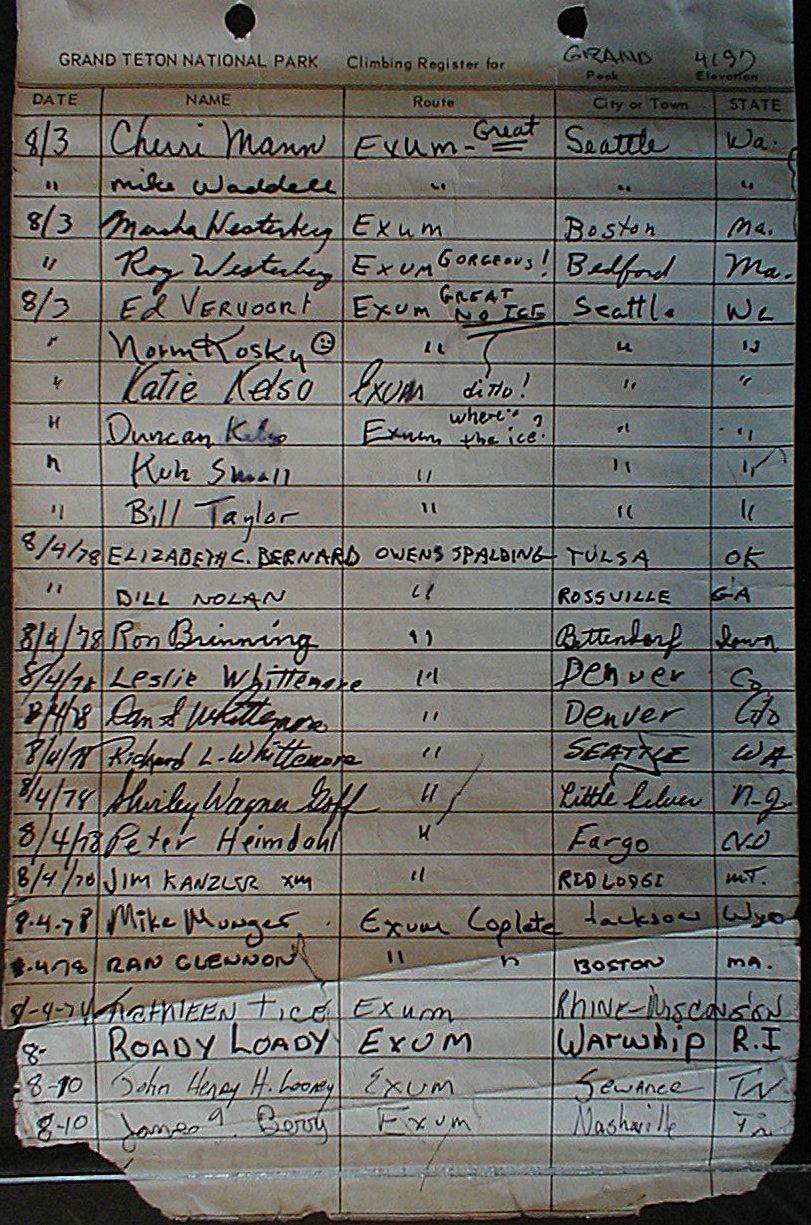 GRAND TETON NATIONAL PARK Climbing Register for GRAND 4197
Peak Elevation
DATE NAME Route City or Town STATE
8/3 Cherri Mann Exum - Great Seattle Wa.
" Mike Waddell " " "
8/3 Marsha Westerberg Exum Boston Ma.
" Roy Westerberg Exum GORGEOUS! Bedford Ma.
8/3 Ed VERVOORT Exum GREAT NO ICE Seattle Wa
" Norm Kosky " " "
" Katie Kelso Exum ditto! " "
" Duncan Kelso Exum where's the ice? " "
" Small " " "
" Bill Taylor " " "
8/4/78 ELIZABETH C. BERNARD OWENS SPALDING TULSA OK
" BILL NOLAN " ROSSVILLE GA
8/4/78 Ron Brinning " Bettendorf Iowa
8/4/78 Leslie Whittemore " Denver Co
8/4/78 Dan S Whittemore " Denver Colo
8/4/78 Richard L. Whittemore " SEATTLE WA
8/4/78 Shirley Wagner Goff " Little Silver N.J.
8/4/78 Peter Heimdahl " Fargo ND
8/4/78 JIM KANZLER " RED LODGE MT.
8-4-78 Mike Munger Exum Coplete Jackson Wyo
8-4-78 RAN GLENNON " " BOSTON MA.
KATHLEEN TICE Exum RHINE-WISCONSIN
8- ROADY LOADY EXUM WARWHIP R.I
8-10 John Henry H. Looney Exum Sewanee TN
8-10 James Berry Exum Nashville Tn